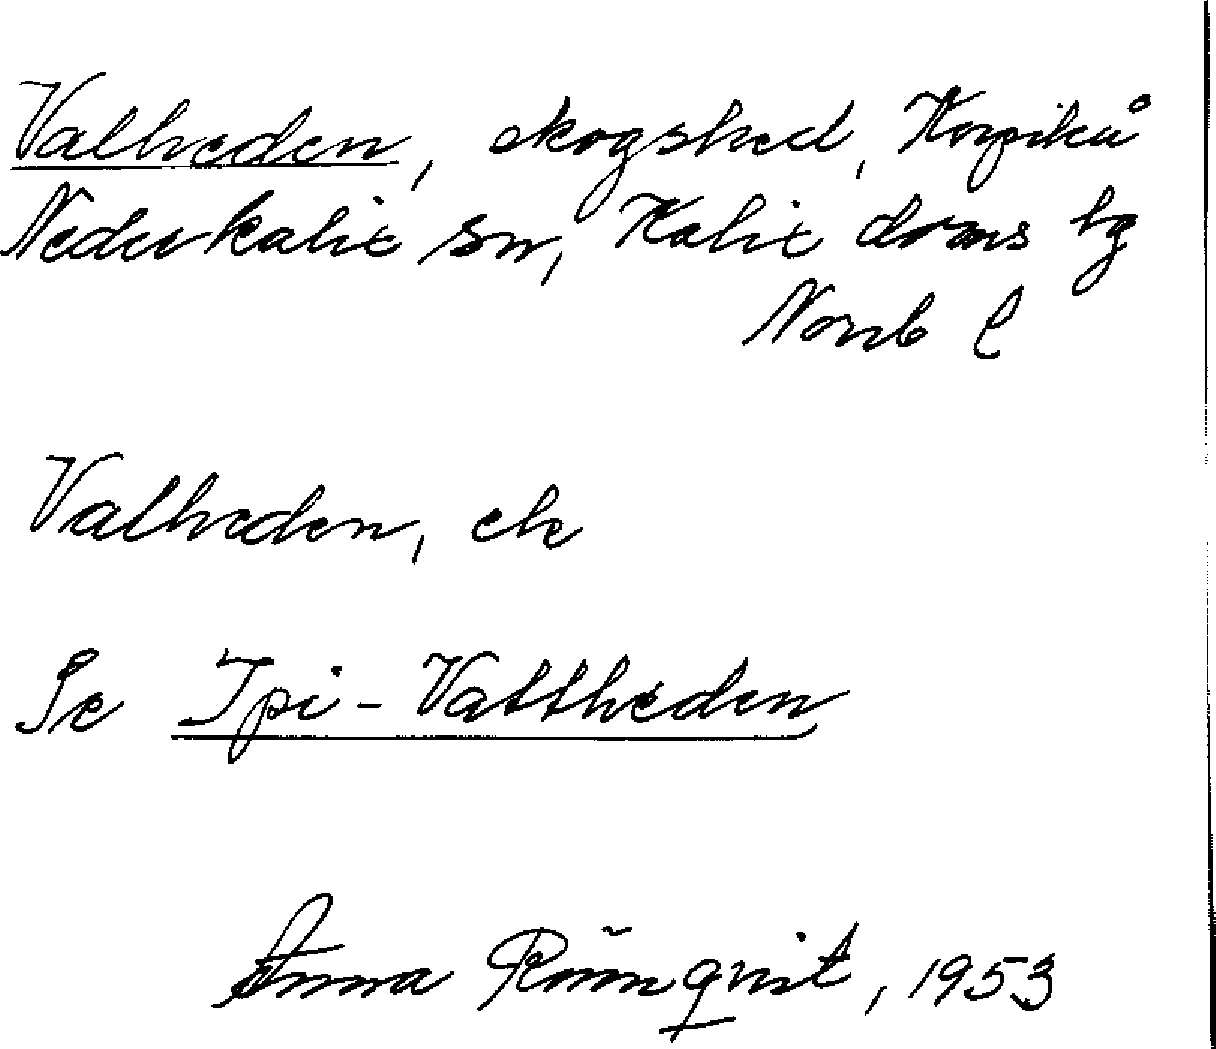 Valheden, skogshed, Korpikå
Nederkalix sn, Kalix doms hg
Norrb l
Valheden, ek
Se Ypi-Vattheden
Anna Rönnqvist, 1953